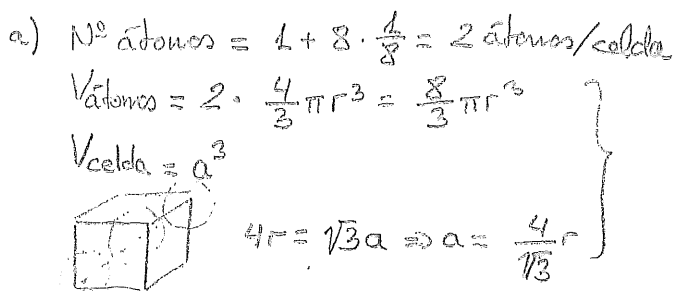 a) Nº átomos = 1 + 8 · 1/8 = 2 átomos/celda
Vátomos = 2 · 4/3 πr³ = 8/3 πr³
Vcelda = a³
4r = √3a ⇒ a = 4/√3 r